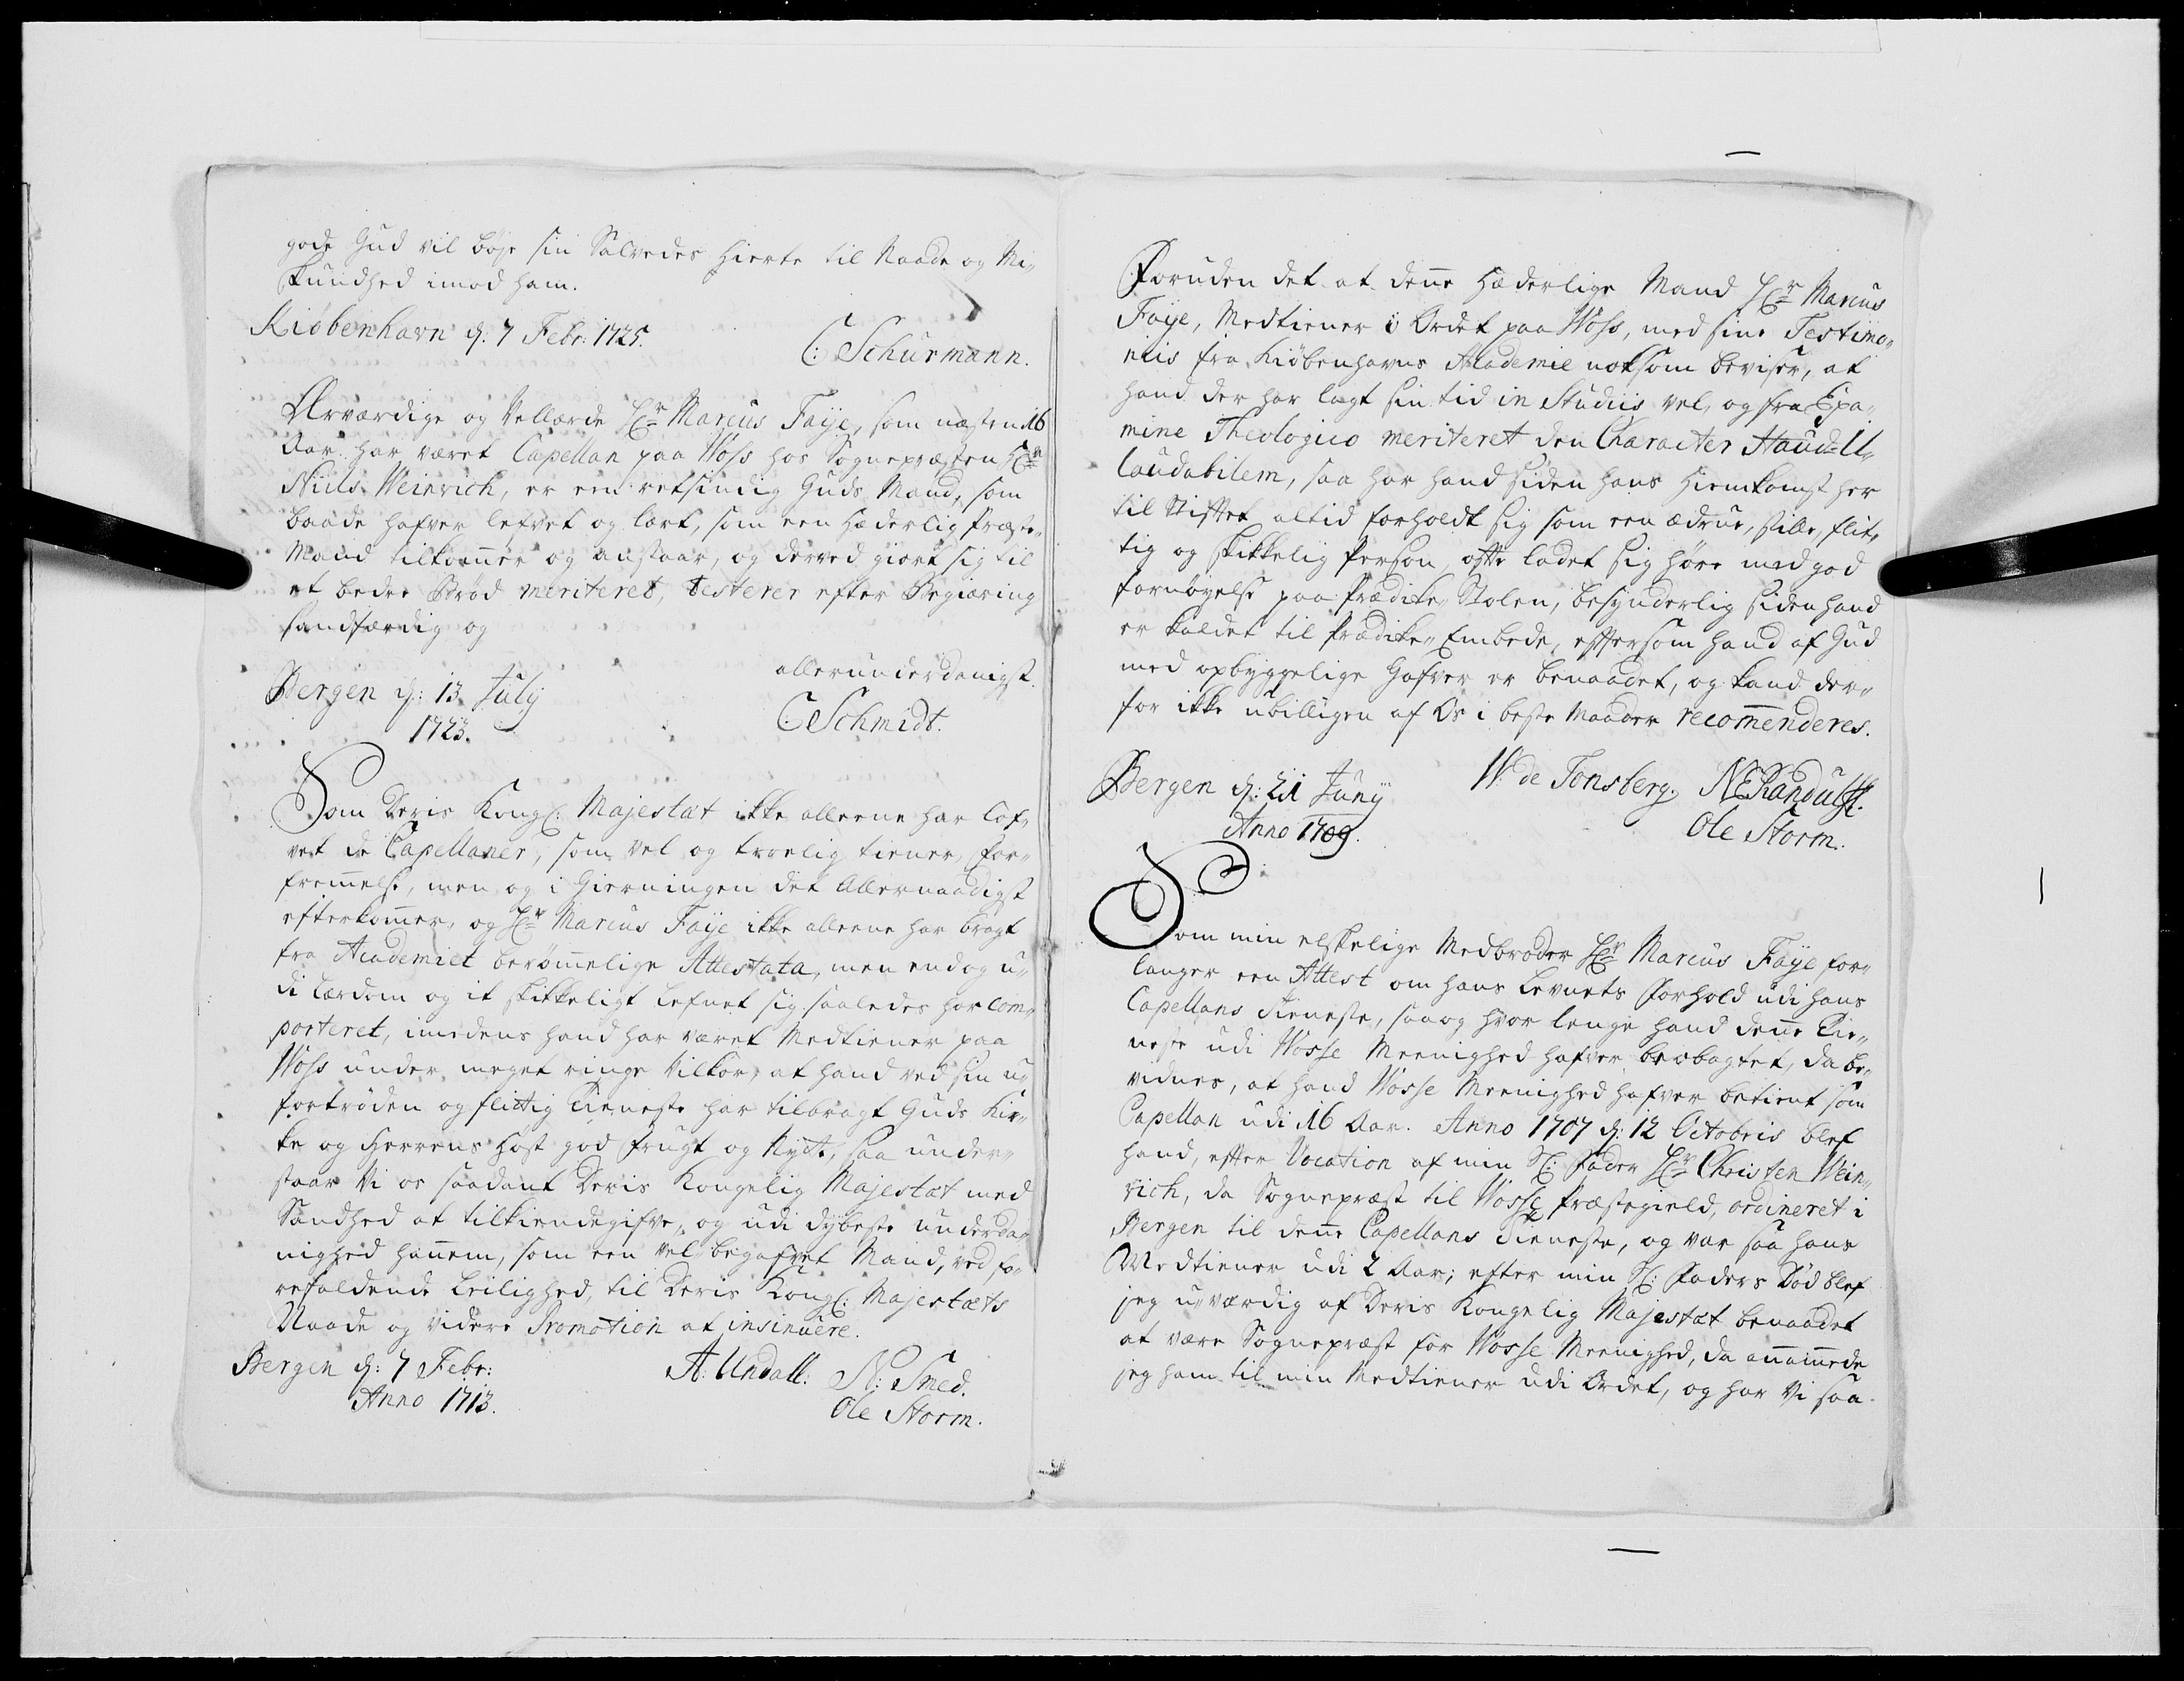 gode Gud vil böje sin Salvedes Hierte til Naade og Mi„
skundhed imod ham.
Kiöbenhavn d: 7 Febr: 1725.
C: Schurmann.
Ærværdige og Vellærde Hr Marcus Faije, som næsten 16
Aar har været Capellan paa Voss hos Sognepræsten Hr
Niels Weinrich, er een retsindig Guds Mand, som
baade hafver lefvet og lært, som een hæderlig Præste„
Mand tilkom̄er og anstaar, og derved giort sig til
et bedre Bröd meriteret, testerer efter Begiæring
sandfærdig og
allerunderdanigst.
Bergen d: 13 July
1723.
C: Schmidt.
Som Deris Kongl: Majestæt ikke alleene har lof„
vet de Capellaner, som vel og troelig tiener, for„
frem̄else, men og i Gierningen det Allernaadigst
efterkom̄er, og Hr Marcus Faije ikke alleene har bragt
fra Academiet beröm̄elige Attestata, men endog u„
di Lærdom og it skikkeligt Lefnet sig saaledes har com„
porteret, imedens hand har været Medtiener paa
Voss under meget ringe Vilkor, at hand ved sin u„
fortröden og flittig Tieneste har tilbragt Guds Kir„
ke og Herrens Höst god frugt og Nytte, saa under„
staar Vi os saadant Deris Kongelig Majestæt med
Sandhed at tilkiendegifve, og udi dybeste underda„
nighed han̄em, som een vel begafvet Mand, ved fo„
refaldende Leilighed, til Deris Kongl: Majestæts
Naade og videre Promotion at insinuere.
Bergen d: 7 Febr:
Anno 1713.
A: Undall: N: Smed.
Ole Storm.
Foruden det at den̄e Hæderlige Mand Hr Marcus
Faije, Medtiener i Ordet paa Voss, med sine Testimo„
niis fra Kiöbenhavns Academie noksom beviser, at
hand der har lagt sin tid in Studiis vel, og fra Exa„
mine Theologico meriteret den Character Haud=Il„
laudabilem, saa har hand siden hans Hiemkomst her
til Stiftet altid forholdt sig som een ædrue, stille, flit„
tig og skikkelig Person, ofte ladet sig höre med god
fornöyelse paa Prædike„Stolen, besynderlig siden hand
er kaldet til Prædike„Embede, eftersom hand af Gud
med opbyggelige Gafver er benaadet, og kand der„
for ikke ubilligen af Os i beste Maader recom̄enderes.
Bergen d: 21 Junij
Anno 1709.
W: de Tonsberg. NE Randulff.
Ole Storm.
Som min elskelige Medbroder Hr Marcus Faije for„
langer een Attest om hans Levnets Forhold udi hans
Capellans Tieneste, saa og hvor lenge hand den̄e Tie„
neste udi Vosse Meenighed hafver beobagtet, da be„
vidnes, at hand Vosse Meenighed hafver betient som
Capellan udi 16 Aar. Anno 1707 d: 12 Octobris blef
hand, efter Vocation af min Sl: Fader Hr Christen Wein„
rich, da Sognepræst til Vosse Præstegield, ordineret i
Bergen til den̄e Capellans Tieneste, og var saa hans
Medtiener udi 2 Aar; efter min Sl: Faders Död blef
jeg u„værdig af Deris Kongelig Majestæt benaadet
at være Sognepræst for Vosse Meenighed, da an̄am̄ede
jeg ham til min Medtiener udi Ordet, og har Vi saa